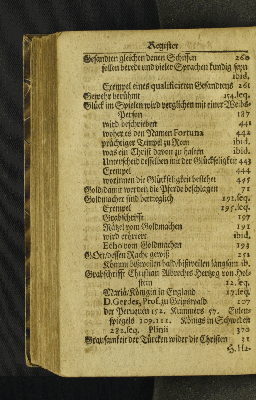 Register
Gesandten gleichen denen Schiffen 260
sollen beredt und vieler Sprachen kundig seyn
ibid,
Exempel eines qualificirten Gesandtens 261
Gewehr berühmt 154.seq.
Glück im Spielen wird verglichen mit einer Weibs-
Person 187
wird beschrieben 441
woher es den Namen Fortuna 442
prächtiger Tempel zu Rom ibid.
was ein Christ davon zu halten ibid.
Unterscheid desselben mit der Glückseligkeit 443
Exempel 444
worinnen die Glückseligkeit bestehet 455
Gold/damit werden die Pferde beschlagen 71
Goldmacher sind betrieglich 192.seq.
Exempel 195.seq.
Grabschrifft 197
Rätzel vom Goldmachen 191
wird erörtert ibid.
Echo vom Goldmachen 193
GOtt/dessen Rache gewiß 251
Kömmt bißweilen bald/bißweilen langsam ib.
Grabschrifft Christian Albrechts Hertzog von Hol-
stein 12.seq.
Mariä/Königin in England 17.seq.
D. Gerdes, Prof. zu Greipswald 107
der Peruquen 152. Kummers 57. Eulen-
spiegels 109.111. Königs in Schweden
282.seq. Plinii 370
Grausamkeit der Türcken wider die Christen 31